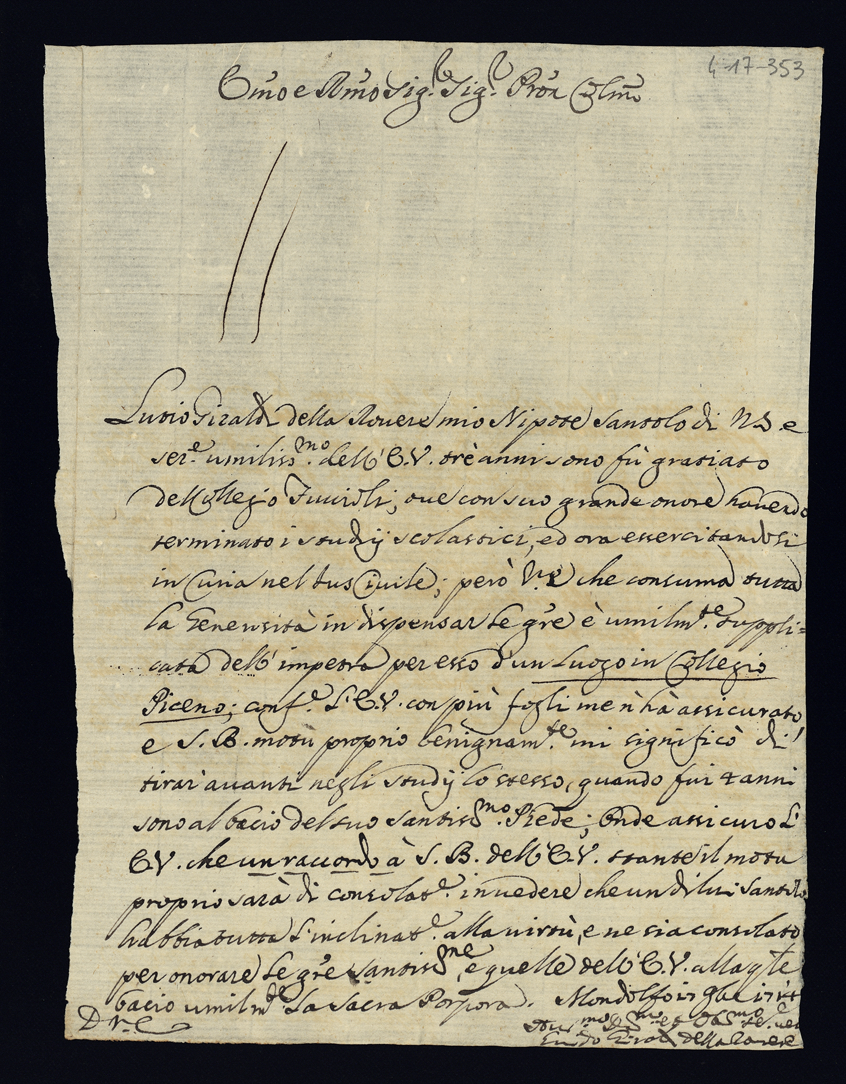 4-17-353
Em̃o e Rm̃o Sig.r Sig.r Prõn Cõlmo
Lutio Giraldi della Rovere mio Nipote santolo di N.S. e
ser.e umiliss.mo dell'E.V. trè anni sono fù gratiato
del Collegio Fuccioli; ove con suo grande onore havendo
terminato i studij scolastici, ed ora essercitandosi
in Curia nel Jus Civile; però che consuma tutta
la Generosità in dispensar le gr̃e è umilm.te suppli=
cata dell'impetra per esso d'un Luogo in Collegio
Piceno; conf.e L'E.V. con più fogli me n'hà assicurato,
e S.B. motù proprio benignam.te mi significò di
tirar avanti negli studij lo stesso, quando fui 4 anni
sono al bacio del suo santiss.mo Piede; Onde assicuro L'
E.V. che un raccordo à S.B. dell'E.V. stante il motu
proprio sarà di consolat.e in vedere che un di lui santolo
habbia tutta l'inclinat.e alla virtù, e ne sia consolato
per onorare le gr̃e santiss.me, e quelle dell'E.V. alla q̃le
bacio umilm.te La Sacra Porpora. Mondolfo
D.V.E.
Guido Giraldi della Rovere